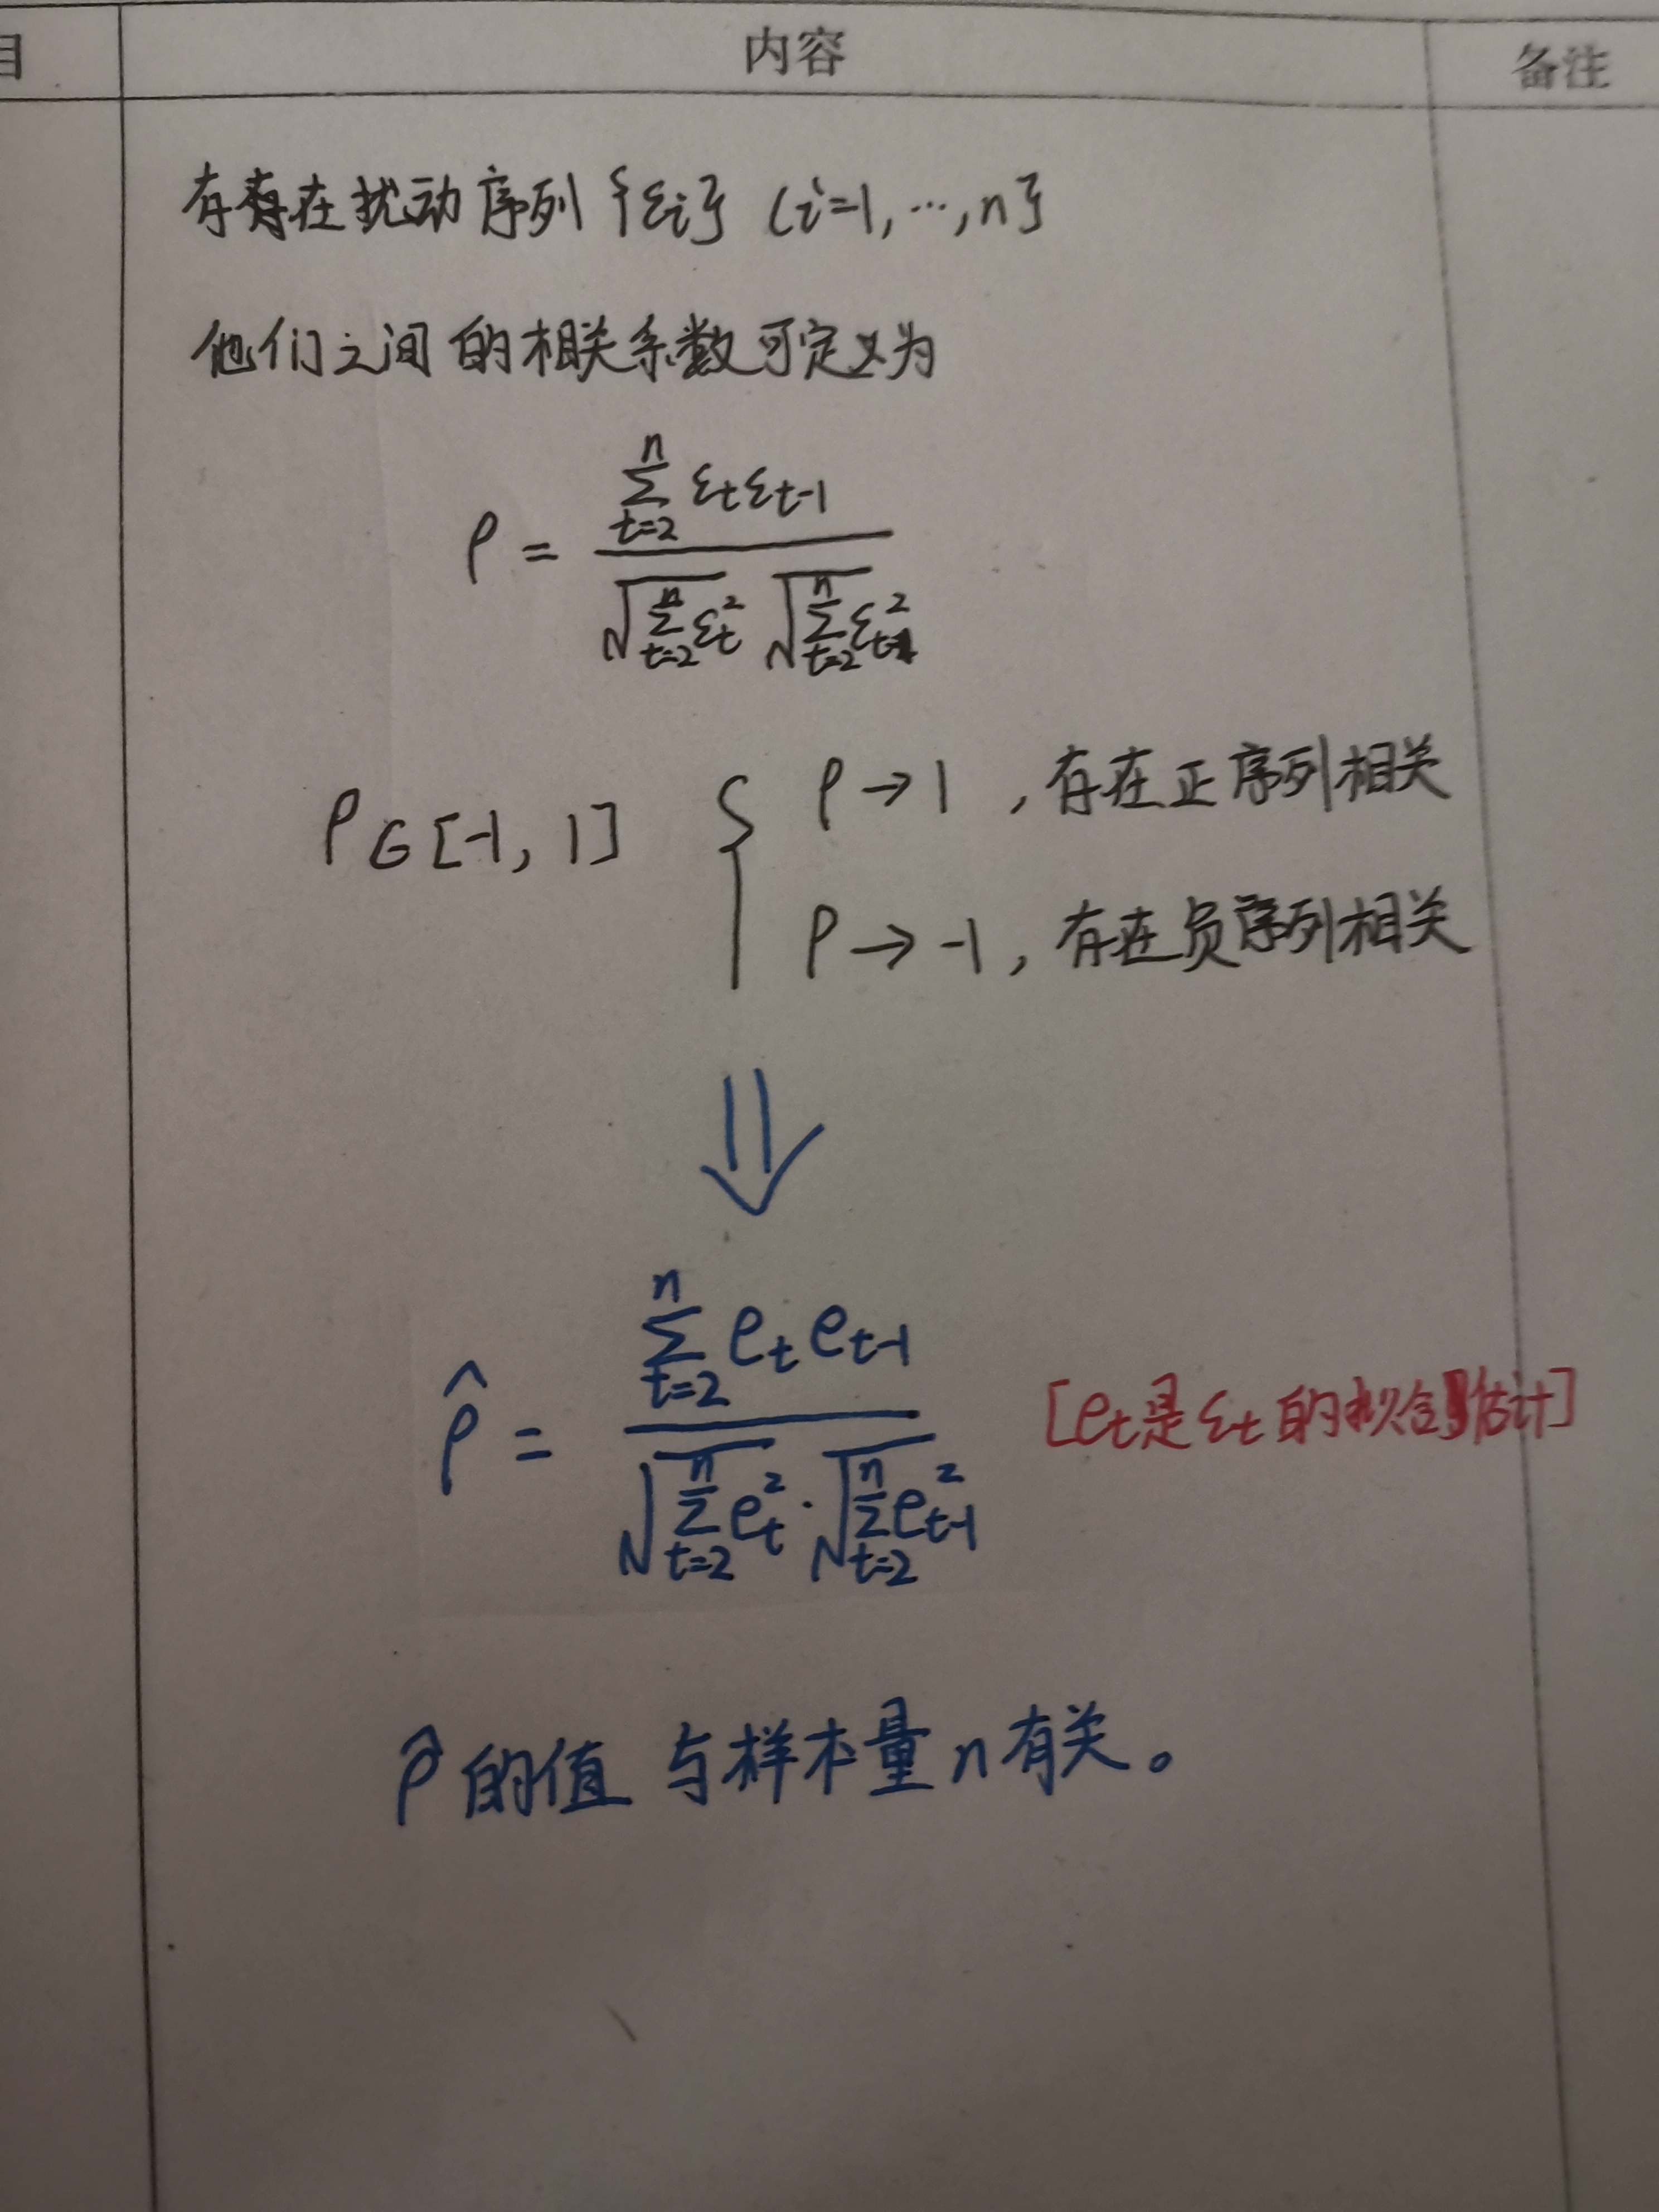 目 内容 备注
存在扰动序列 {εi} (i=1, ⋯, n}
他们之间的相关系数可定义为
ρ = \frac{\sum_{t=2}^{n} ε_t ε_{t-1}}{\sqrt{\sum_{t=2}^{n} ε_t^2} \sqrt{\sum_{t=2}^{n} ε_{t-1}^2}}
ρ∈[-1, 1] { ρ→1, 存在正序列相关
ρ→-1, 存在负序列相关
⇓
\hat{ρ} = \frac{\sum_{t=2}^{n} e_t e_{t-1}}{\sqrt{\sum_{t=2}^{n} e_t^2} · \sqrt{\sum_{t=2}^{n} e_{t-1}^2}} [e_t是ε_t的拟合估计]
\hat{ρ}的值与样本量n有关。